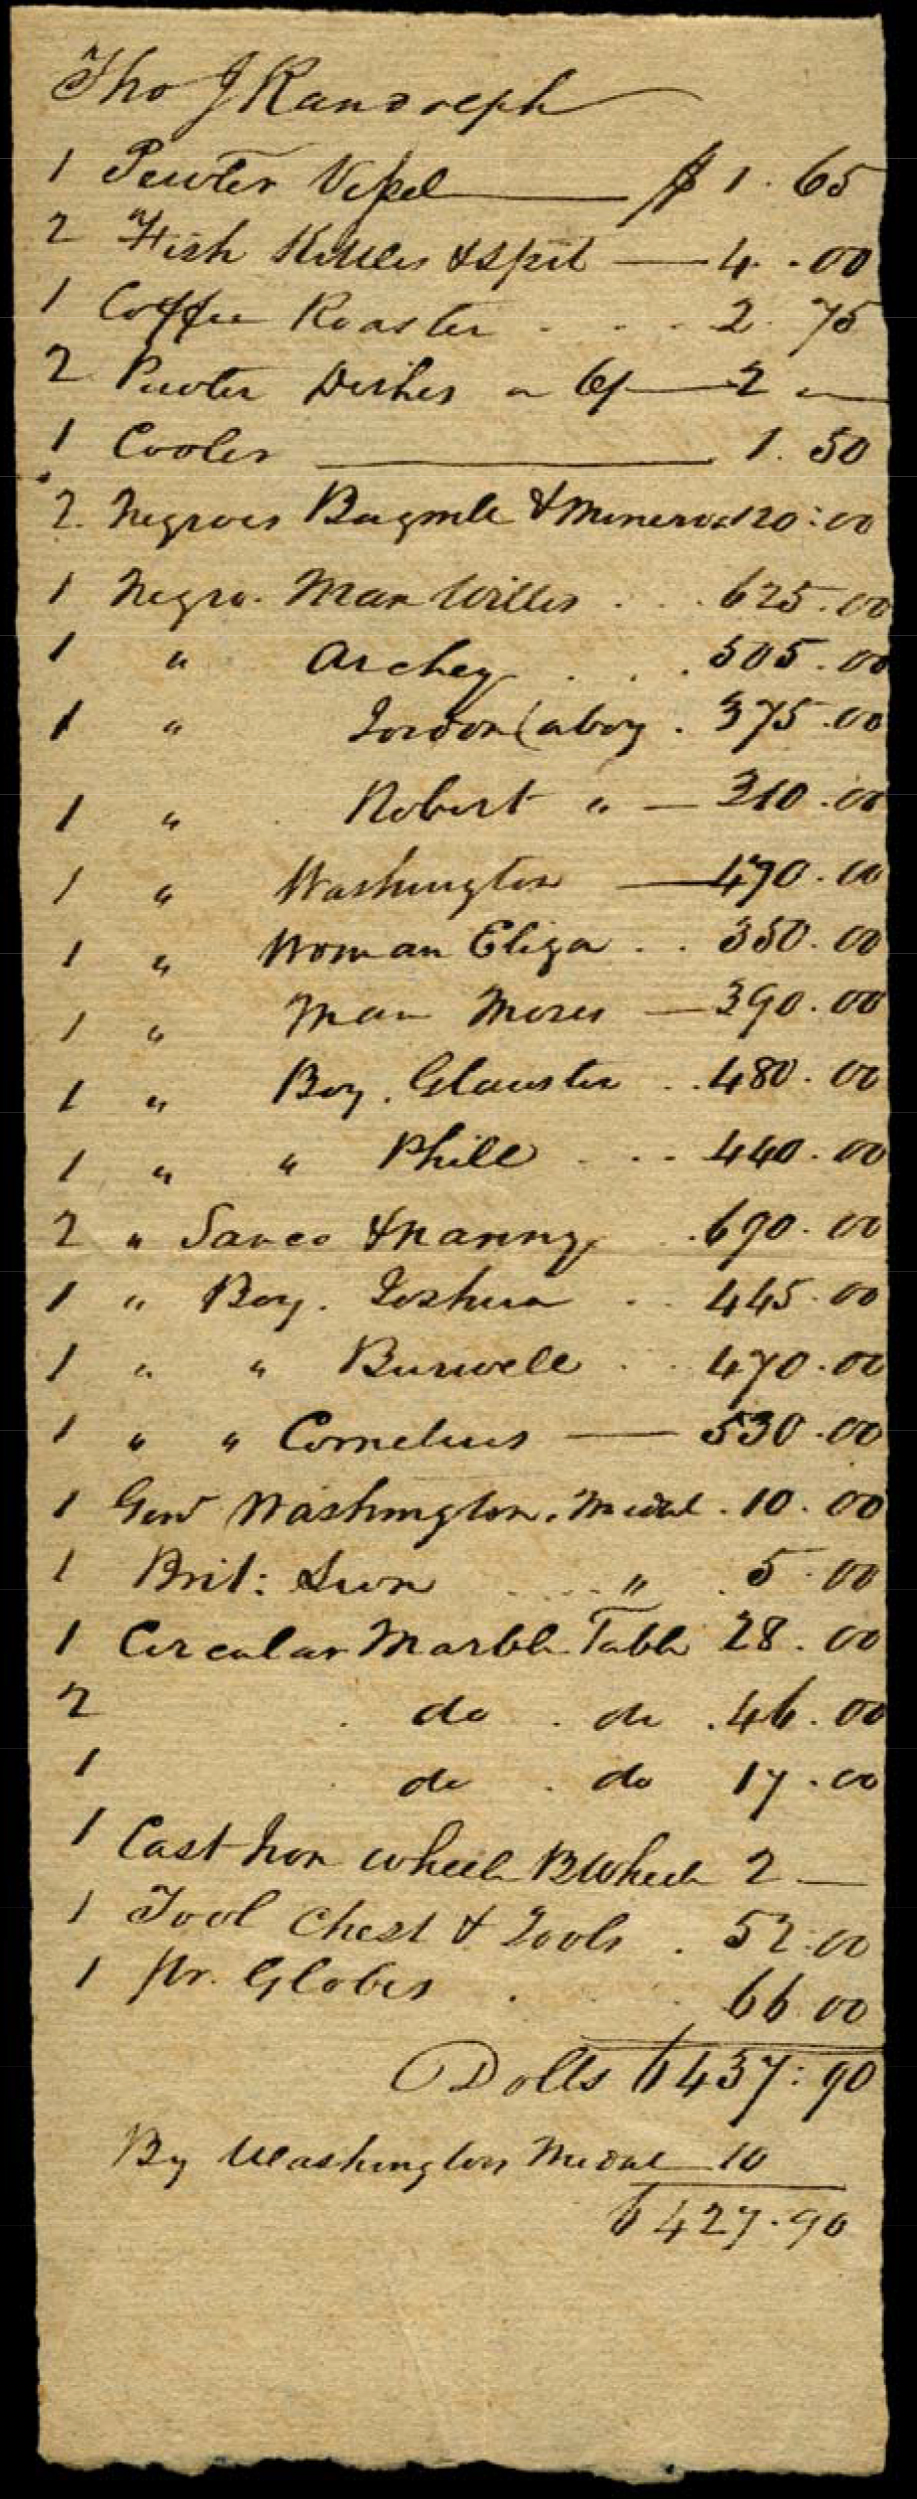 Tho J Randolph
1 Pewter Vessel $1.65
2 Fish Kettles & spit 4.00
1 Coffee Roaster . . . 2.75
2 Pewter Dishes a 6/ 2 —
1 Cooler 1.50
2. Negroes Bagwell & Minerva 120:00
1 Negro. Man Willis . . . 625.00
1 " Archey . . . 505.00
1 " Jordon (a boy . 375.00
1 " Robert " — 310.00
1 " Washington — 470.00
1 " Woman Eliza . . 350.00
1 " Man Moses — 390.00
1 " Boy. Glauster . . 480.00
1 " " Phill . . . 440.00
2 " Sanco & Nanny . 690.00
1 " Boy. Joshua . . 445.00
1 " " Burwell . . 470.00
1 " " Cornelius — 530.00
1 Genl Washington. Medal . 10.00
1 Brit: Lion " . 5.00
1 Circular Marble Table 28.00
2 . do . do . 46.00
1 . do . do 17.00
1 Cast Iron wheel B Wheel 2 —
1 Tool Chest & Tools . 52.00
1 pr. Globes . . 66 00
Dolls 6437:90
By Washington Medal 10
6427.90